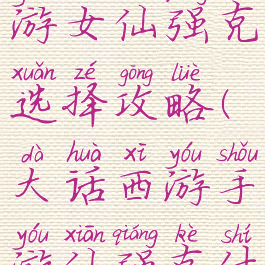 游女仙强克
xuǎn zé gōng lüè
选择攻略(
dà huà xī yóu shǒu
大话西游手
yóu xiān qiáng kè shí
游仙强克什